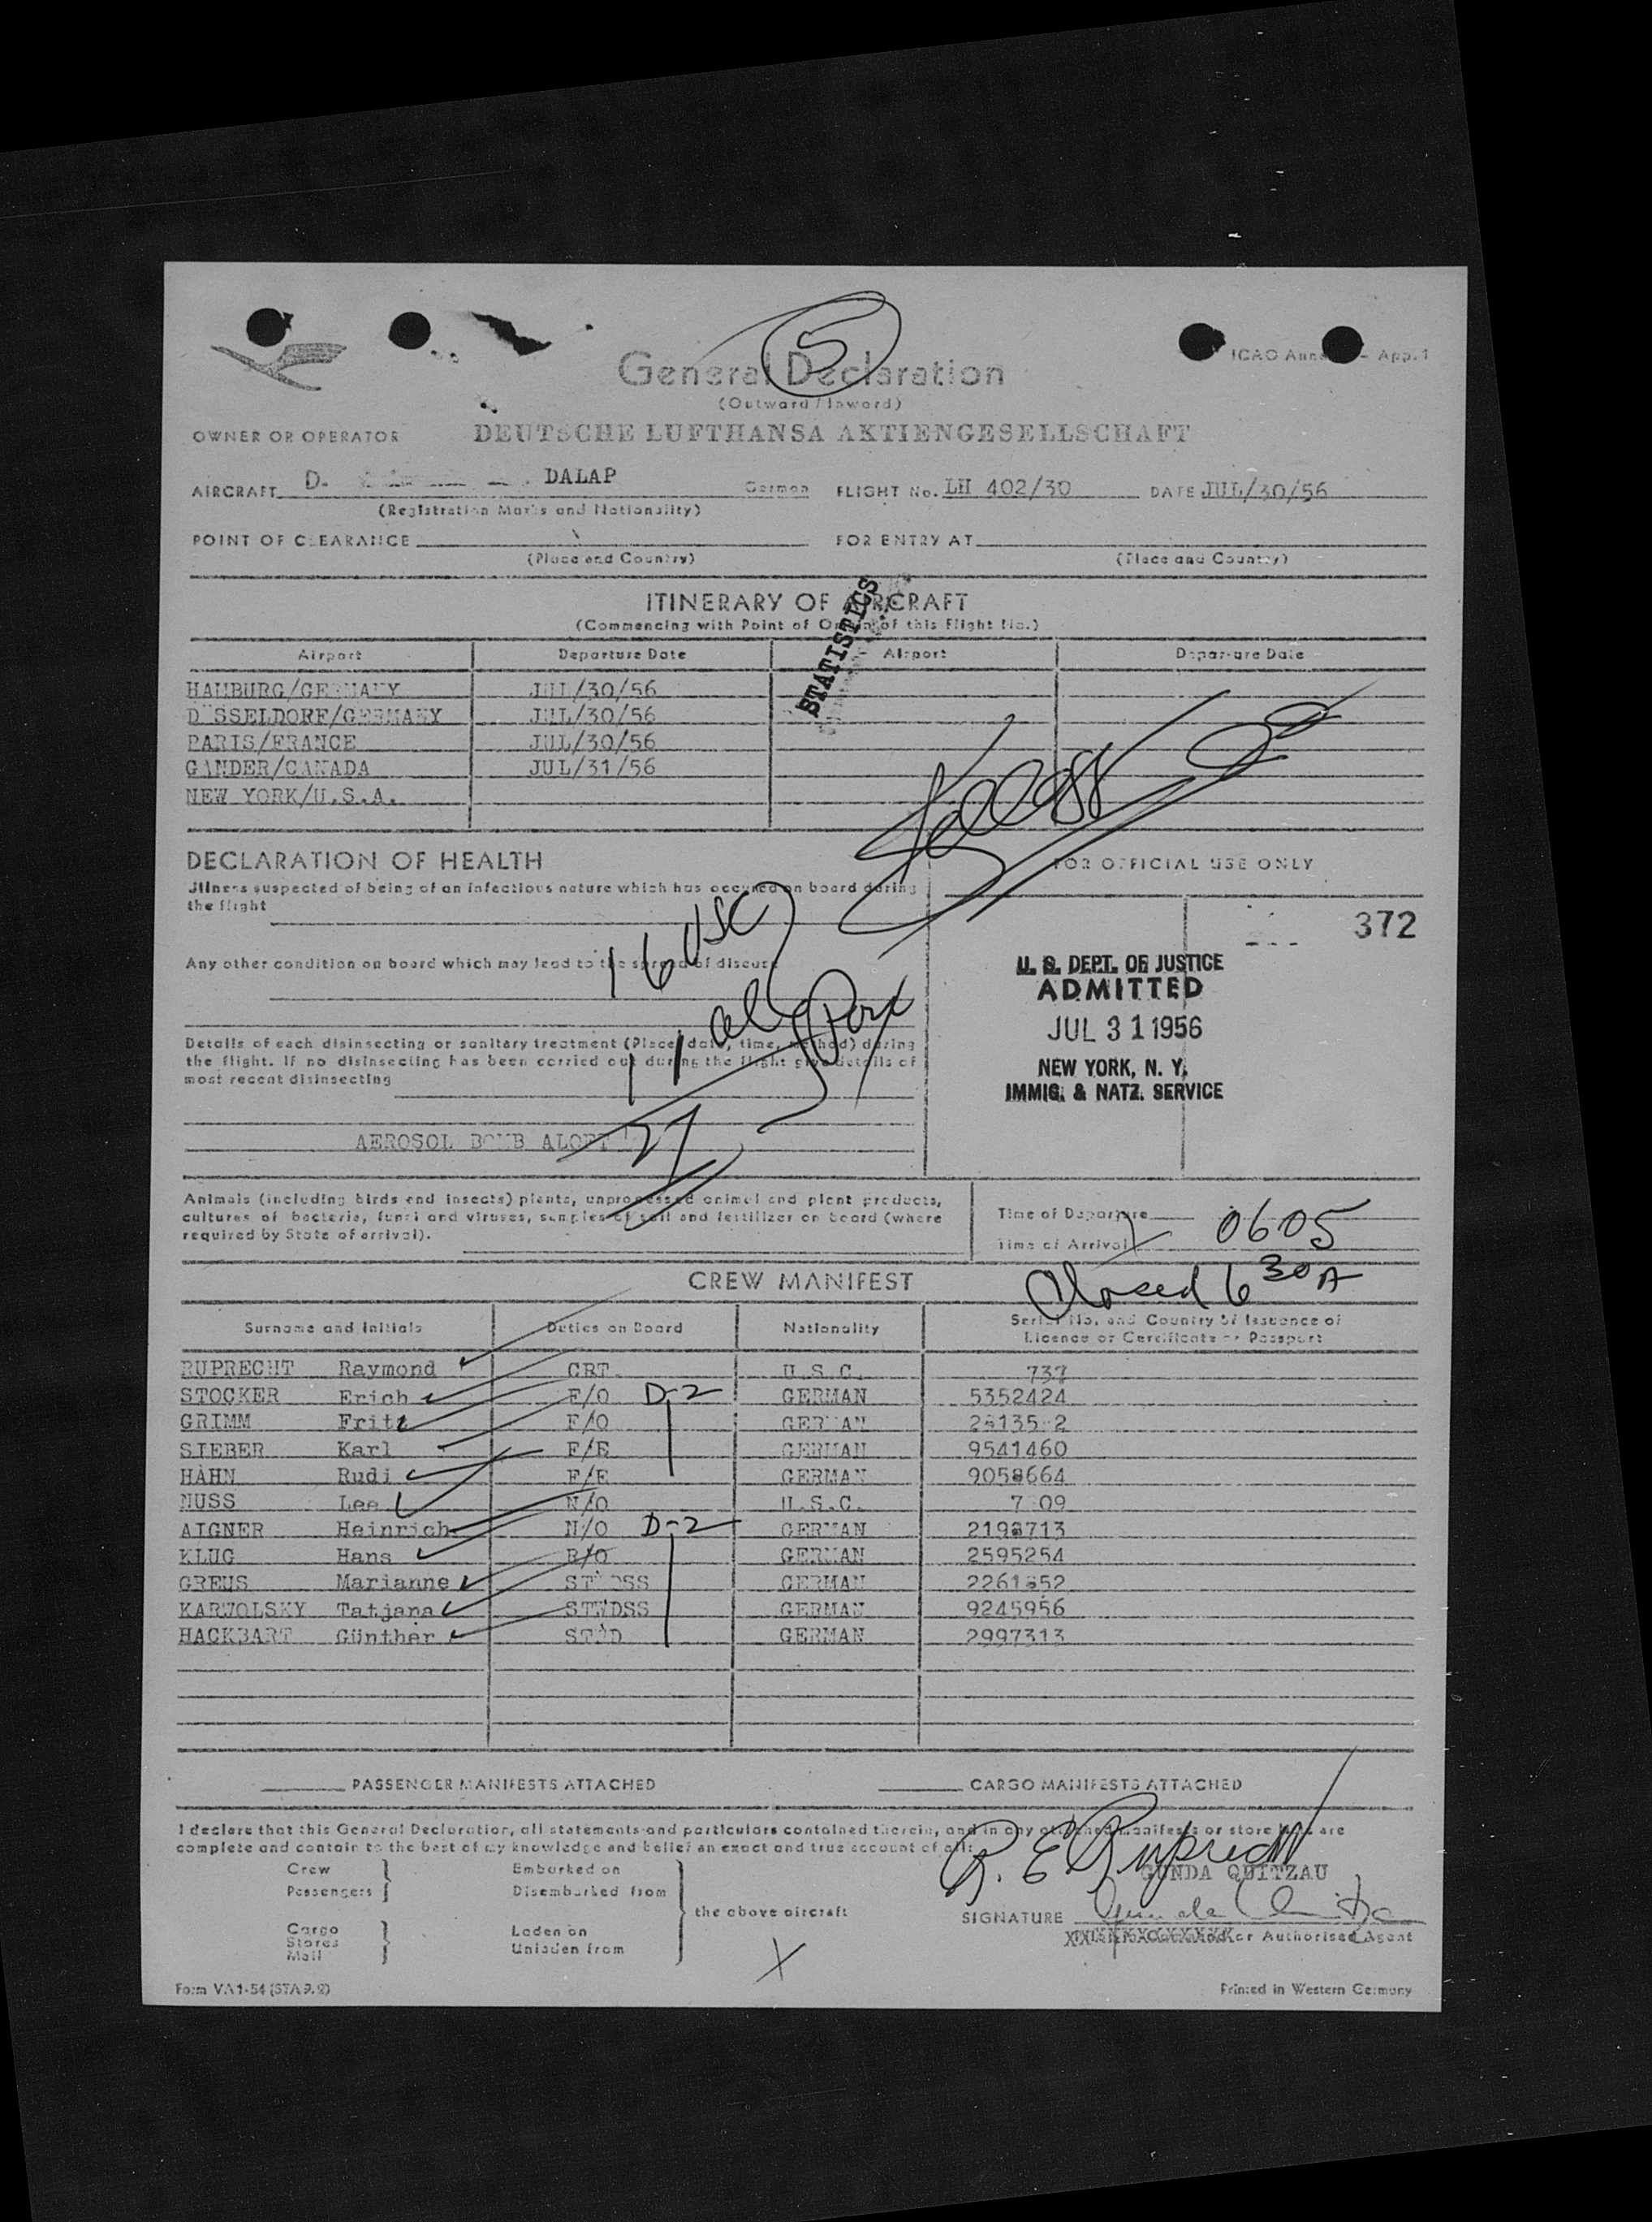 5
ICAO App. 1
General Declaration
(Outward / Inward)
OWNER OR OPERATOR DEUTSCHE LUFTHANSA AKTIENGESELLSCHAFT
AIRCRAFT D- DALAP German FLIGHT No. LH 402/30 DATE JUL/30/56
(Registration Marks and Nationality)
POINT OF CLEARANCE FOR ENTRY AT
(Place and Country) (Place and Country)
STATISTICS
ITINERARY OF AIRCRAFT
(Commencing with Point of Origin of this Flight No.)
Airport Departure Date Airport Departure Date
HAMBURG/GERMANY JUL/30/56
DÜSSELDORF/GERMANY JUL/30/56
PARIS/FRANCE JUL/30/56
GANDER/CANADA JUL/31/56
NEW YORK/U.S.A.
DECLARATION OF HEALTH
FOR OFFICIAL USE ONLY
Illness suspected of being of an infectious nature which has occured on board during
the flight
372
16 USC
Any other condition on board which may lead to the spread of disease
U. S. DEPT. OF JUSTICE
ADMITTED
JUL 31 1956
NEW YORK, N. Y.
IMMIG. & NATZ. SERVICE
11 al
Details of each disinsecting or sanitary treatment (Place, date, time, method) during
the flight. If no disinsecting has been carried out during the flight give details of
most recent disinsecting
AEROSOL BOMB ALOFT
27
Animals (including birds and insects) plants, unprocessed animal and plant products,
cultures of bacteria, fungi and viruses, samples of soil and fertilizer on board (where
required by State of arrival).
Time of Departure
Time of Arrival 0605
Closed 6 30 A
CREW MANIFEST
Surname and Initials Duties on Board Nationality Serial No. and Country of Issuence of
Licence or Certificate or Passport
RUPRECHT Raymond CPT. U.S.C. 737
STOCKER Erich F/O D-2 GERMAN 5352424
GRIMM Fritz F/O GERMAN
SIEBER Karl F/E GERMAN 9541460
HAHN Rudi F/E GERMAN 9058664
NUSS Lee N/O U.S.C.
AIGNER Heinrich N/O D-2 GERMAN
KLUG Hans R/O GERMAN 2595254
GREUS Marianne STWDSS GERMAN
KARWOLSKY Tatjana STWDSS GERMAN 9245956
HACKBART Günther STWD GERMAN 2997313
PASSENGER MANIFESTS ATTACHED CARGO MANIFESTS ATTACHED
I declare that this General Declaration, all statements and particulars contained therein, and in any attached manifests or store are
complete and contain to the best of my knowledge and belief an exact and true account of all:
R. E. Ruprecht
Crew Embarked on
Passengers Disembarked from
the above aircraft
Cargo Laden on
Stores Unladen from
Mail
GUNDA QUITZAU
SIGNATURE
or Authorised Agent
X
Form VA 1-54 Printed in Western Germany